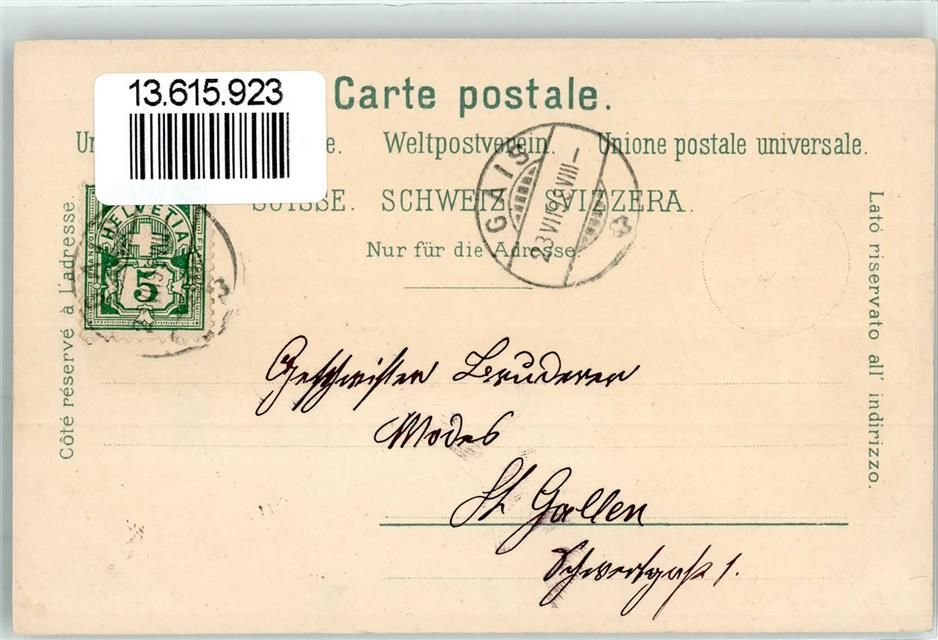 13.615.923
Carte postale.
Weltpostverein. Unione postale universale.
SUISSE. SCHWEIZ. SVIZZERA.
Nur für die Adresse.
Côté réservé à l'adresse.
Lato riservato all' indirizzo.
HELVETIA
5
GAIS
Geschwister Bruderer
Modes
St Gallen
Schwertgaße 1.